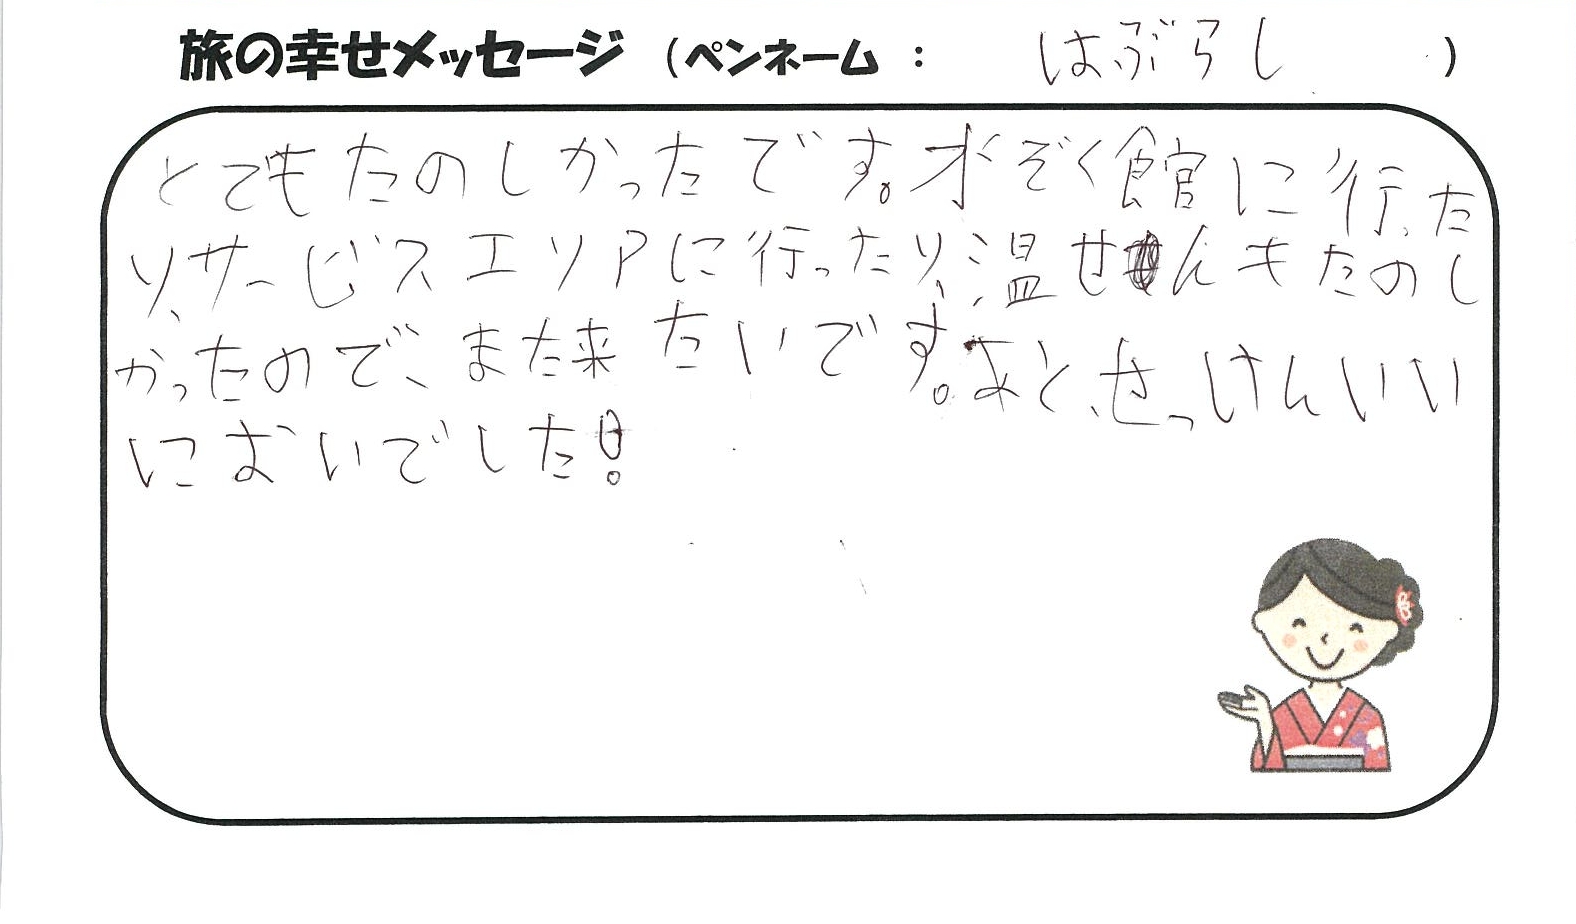 旅の幸せメッセージ (ペンネーム : はぶらし )
とてもたのしかったです。水ぞく館に行った
り、サービスエリアに行ったり、温せんもたのし
かったので、また来たいです。あと、せっけんいい
においでした!